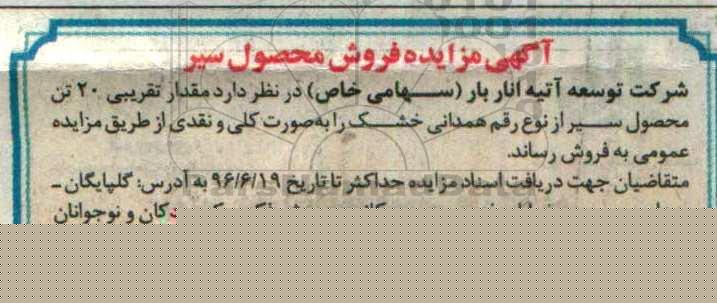 آگهی مزایده فروش محصول سیر
شرکت توسعه آتیه انار بار (سهامی خاص) در نظر دارد مقدار تقریبی ۲۰ تن
محصول سیر از نوع رقم همدانی خشک را به‌صورت کلی و نقدی از طریق مزایده
عمومی به فروش رساند.
متقاضیان جهت دریافت اسناد مزایده حداکثر تا تاریخ ۹۶/۶/۱۹ به آدرس: گلپایگان ـ
کان و نوجوانان